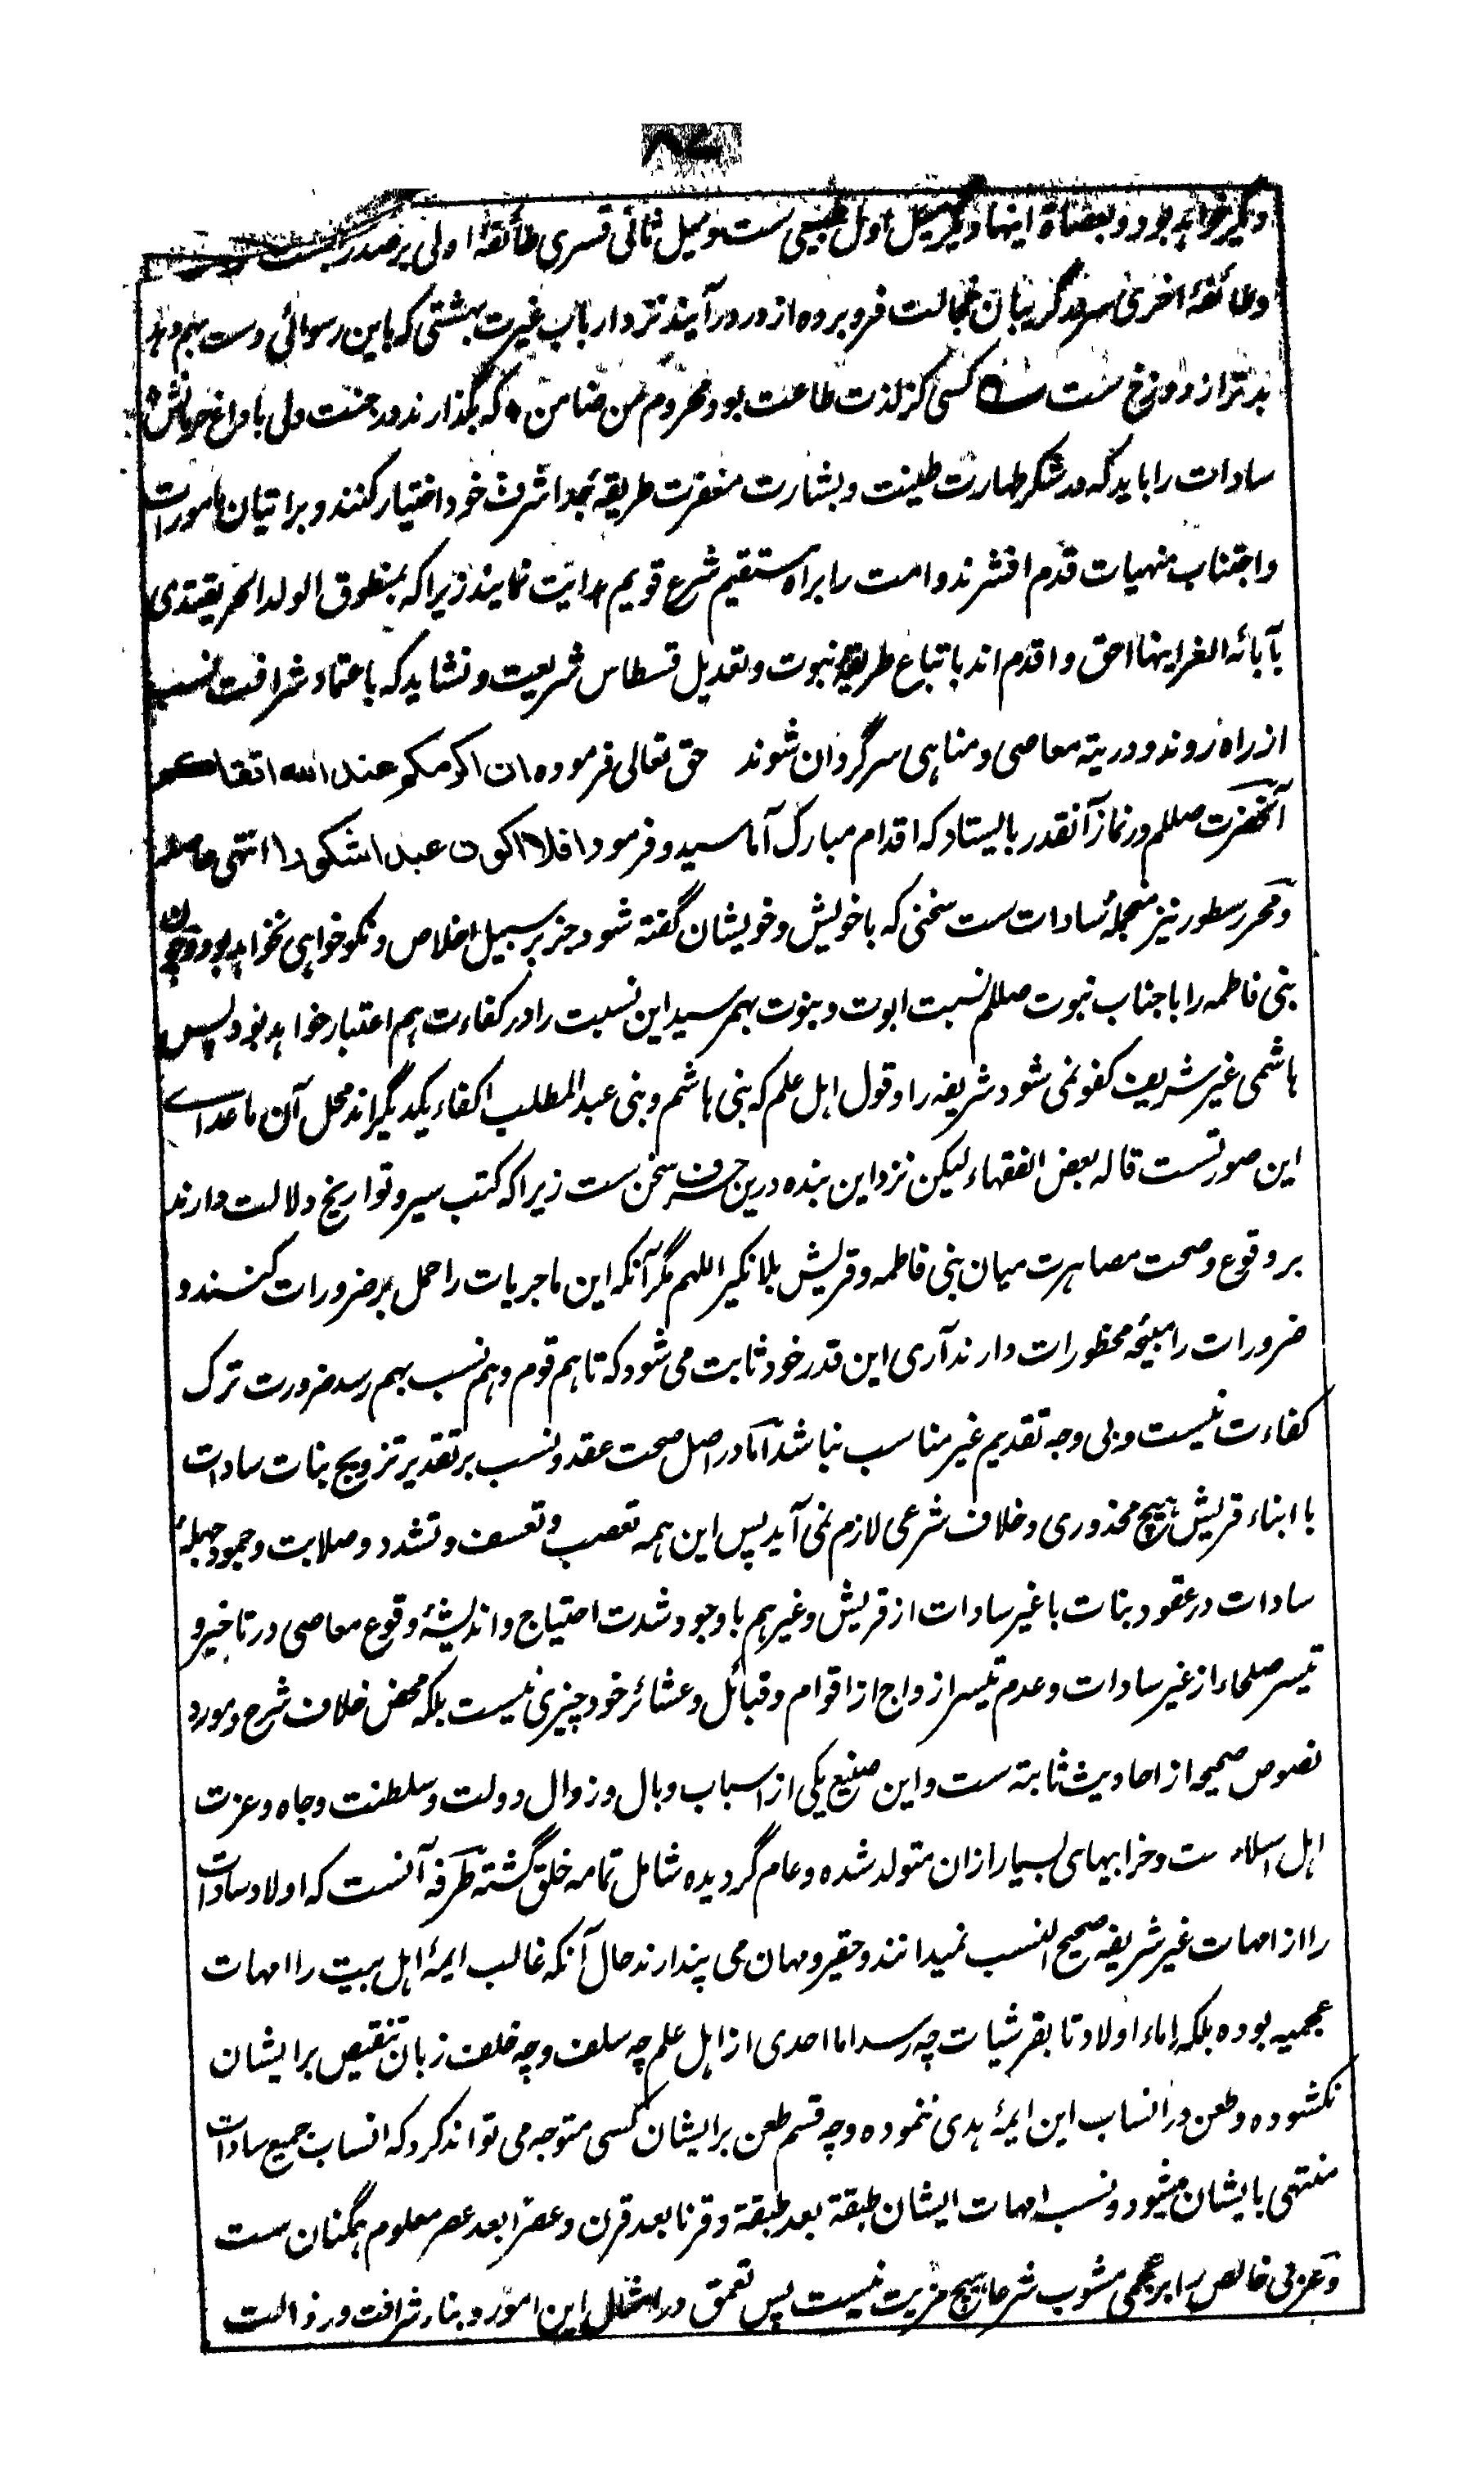 ۸۷
دیگر خواهد بود و بعصاة اینها دیگر میل اول طبیعی ست و میل ثانی قسری طائفۀ اولی بر صدر
و طائفۀ اخری سر در گریبان خجالت فرو برده از در درآیند نزد ارباب غیرت بهشتی که باین رسوائی دست بهم دهد
بدتر از دوزخ ست کسی کز لذت طاعت بود محروم من ضامن که بگذارند در جنت ولی با داغ حرمانش
سادات را باید که در شکر طهارت طینت و بشارت مغفرت طریقۀ جد اشرف خود اختیار کنند و بر اتیان مامورات
و اجتناب منهیات قدم افشرند و امت را براه مستقیم شرع قویم هدایت نمایند زیرا که بمنطوق الولد الحر یقتدی
بآبائه الغر اینها احق و اقدم اند باتباع طریقۀ نبوت و تعدیل قسطاس شریعت و نشاید که باعتماد شرافت نسب
از راه روند و در تیه معاصی و مناهی سرگردان شوند حق تعالی فرموده ان اکرمکم عند الله اتقاکم
آنحضرت صللم در نماز آنقدر بایستاد که اقدام مبارک آماسید و فرمود افلا اکون عبدا شکورا انتهی حاصله
و محرر سطور نیز منجملۀ سادات ست سخنی که با خویش و خویشان گفته شود جز بر سبیل اخلاص و نکو خواهی نخواهد بود و چون
بنی فاطمه را با جناب نبوت صللم نسبت ابوت و بنوت بهمرسید این نسبت را در کفاءت هم اعتبار خواهد بود پس
هاشمی غیر شریف کفو نمی شود شریفه را و قول اهل علم که بنی هاشم و بنی عبد المطلب اکفاء یکدیگر اند محل آن ماعدای
این صورتست قاله بعض الفقهاء لیکن نزد این بنده درین حرف سخن ست زیرا که کتب سیر و تواریخ دلالت دارند
بر وقوع و صحت مصاهرت میان بنی فاطمه و قریش بلا نکیر اللهم مگر آنکه این ماجریات را حمل بر ضرورات کنند و
ضرورات را مبیحۀ محظورات دارند آری این قدر خود ثابت می شود که تا هم قوم و هم نسب بهم رسد ضرورت ترک
کفاءت نیست و بی وجه تقدیم غیر مناسب نباشد اما در اصل صحت عقد و نسب بر تقدیر تزویج بنات سادات
با ابناء قریش هیچ محذوری و خلاف شرعی لازم نمی آید پس این همه تعصب و تعسف و تشدد و صلابت و جمود جهلۀ
سادات در عقود بنات با غیر سادات از قریش و غیرهم با وجود شدت احتیاج و اندیشۀ وقوع معاصی در تاخیر و
تیسر صلحا را از غیر سادات و عدم تیسر ازواج از اقوام و قبائل و عشائر خود چیزی نیست بلکه محض خلاف شرع و مورد
نصوص صحیحه از احادیث ثابته ست و این صنیع یکی از اسباب وبال و زوال دولت و سلطنت و جاه و عزت
اهل اسلام ست و خرابیهای بسیار ازان متولد شده و عام گردیده شامل تمامه خلق گشته طرفه آنست که اولاد سادات
را از امهات غیر شریفه صحیح النسب نمیدانند و حقیر و مهان می پندارند حال آنکه غالب ایمۀ اهل بیت را امهات
عجمیه بوده بلکه اماء اولاد تا بقرشیات چه رسد اما احدی از اهل علم چه سلف و چه خلف زبان تنقیص بر ایشان
نکشوده و طعن در انساب این ایمۀ هدی ننموده و چه قسم طعن بر ایشان کسی متوجه می تواند کرد که انساب جمیع سادات
منتهی بایشان میشود و نسب امهات ایشان طبقة بعد طبقة و قرنا بعد قرن و عصرا بعد عصر معلوم همگنان ست
و عربی خالص را بر عجمی مشوب شرعا هیچ مزیت نیست پس تعمق در امثال این امور و بناء شرافت و رذالت